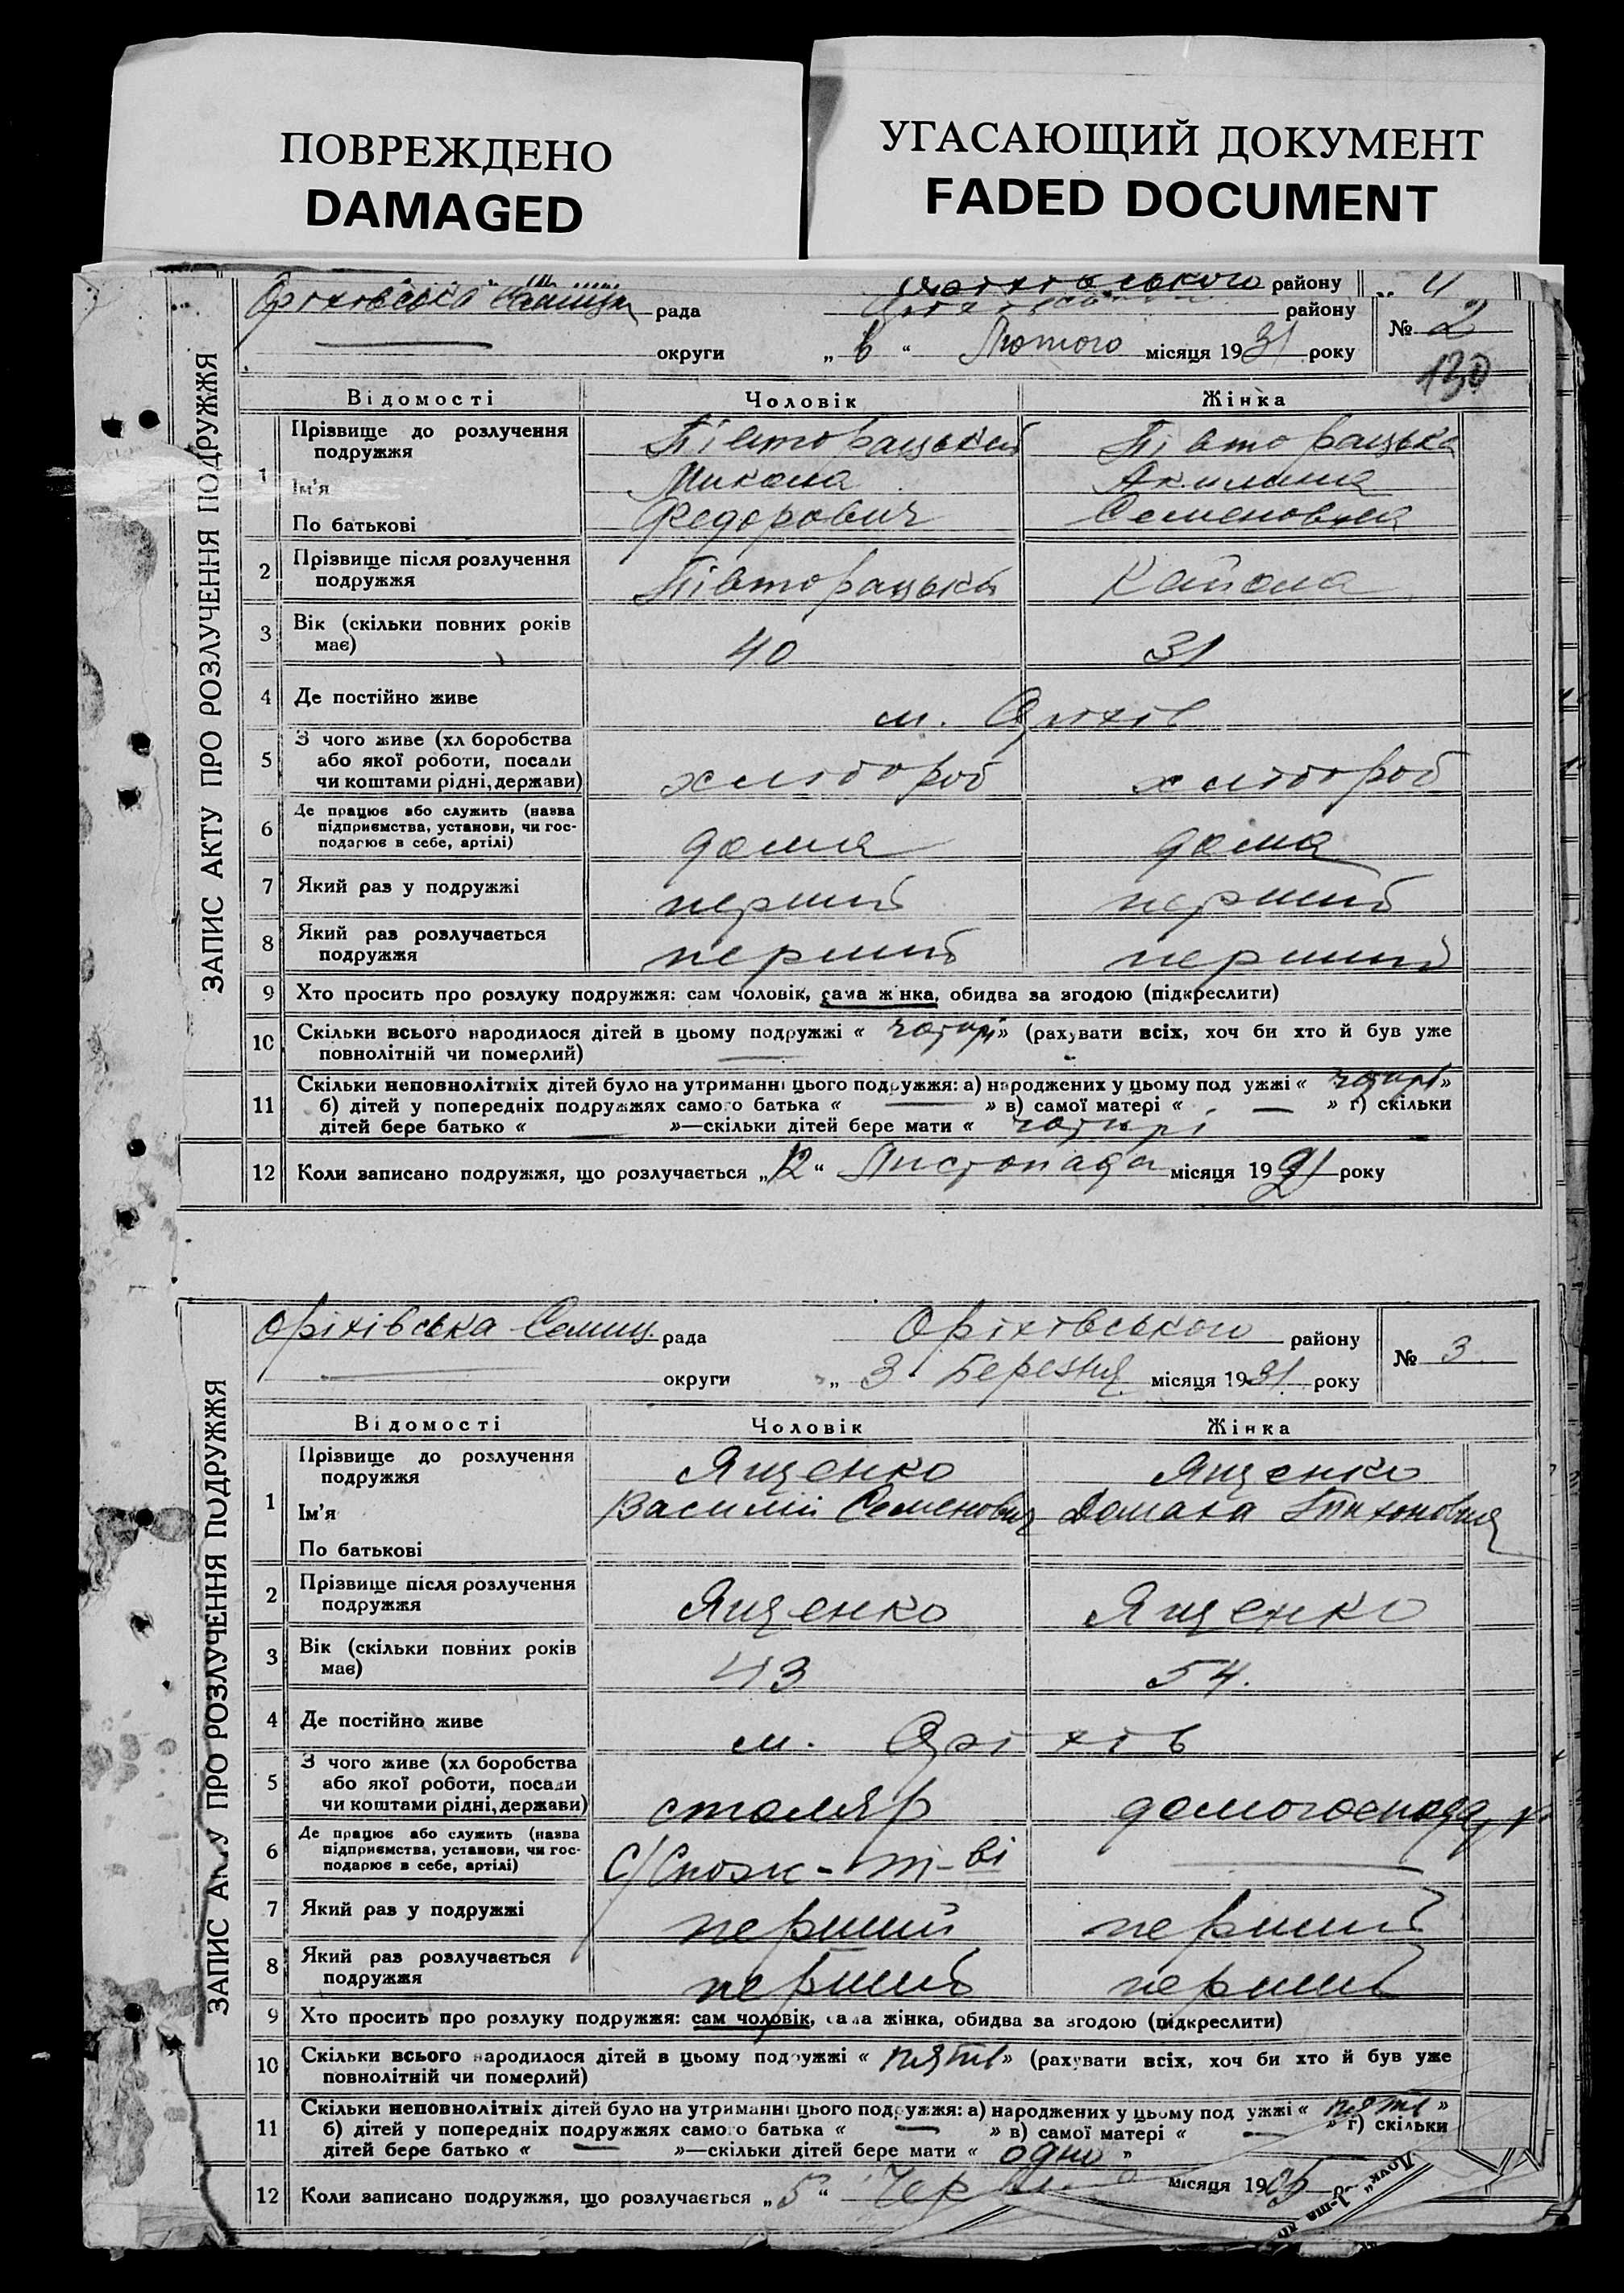 ПОВРЕЖДЕНО
DAMAGED
УГАСАЮЩИЙ ДОКУМЕНТ
FADED DOCUMENT
району
ЗАПИС АКТУ ПРО РОЗЛУЧЕННЯ ПОДРУЖЖЯ
рада району № 2
округи „ 6 “ Лютого місяця 1931 року
130
Відомості Чоловік Жінка
1 Прізвище до розлучення подружжя Півторацький Півторацька
Ім'я Микола Акилина
По батькові Федорович Семеновна
2 Прізвище після розлучення
подружжя
3 Вік (скільки повних років
має) 40 31
4 Де постійно живе м. Оріхів
5 З чого живе (хл боробства
або якої роботи, посади
чи коштами рідні, держави) хлібороб хлібороб
6 Де працює або служить (назва
підприємства, установи, чи гос-
подарює в себе, артілі) дома дома
7 Який раз у подружжі перший перший
8 Який раз розлучається
подружжя перший перший
9 Хто просить про розлуку подружжя: сам чоловік, сама жінка, обидва за згодою (підкреслити)
10 Скільки всього народилося дітей в цьому подружжі « чотирі » (рахувати всіх, хоч би хто й був уже
повнолітній чи померлий)
11 Скільки неповнолітніх дітей було на утриманні цього подружжя: а) народжених у цьому под ужжі « чотирі »
б) дітей у попередніх подружжях самого батька « — » в) самої матері « — » г) скільки
дітей бере батько « — »—скільки дітей бере мати « чотирі
12 Коли записано подружжя, що розлучається „12“ Листопада місяця 1921 року
ЗАПИС АКТУ ПРО РОЗЛУЧЕННЯ ПОДРУЖЖЯ
Оріхівська Селищ. рада Оріхівського району № 3
округи „ 3 Березня місяця 1931 року
Відомості Чоловік Жінка
1 Прізвище до розлучення
подружжя Ященко Ященко
Ім'я Василій Семенович Домаха Тихоновна
По батькові
2 Прізвище після розлучення
подружжя Ященко Ященко
3 Вік (скільки повних років
має) 43 54.
4 Де постійно живе м. Оріхів
5 З чого живе (хл боробства
або якої роботи, посади
чи коштами рідні, держави) столяр
6 Де працює або служить (назва
підприємства, установи, чи гос-
подарює в себе, артілі) С/Спож-т-ві —
7 Який раз у подружжі перший перший
8 Який раз розлучається
подружжя перший перший
9 Хто просить про розлуку подружжя: сам чоловік, сама жінка, обидва за згодою (підкреслити)
10 Скільки всього народилося дітей в цьому подружжі « пять » (рахувати всіх, хоч би хто й був уже
повнолітній чи померлий)
11 Скільки неповнолітніх дітей було на утриманні цього подружжя: а) народжених у цьому под ужжі « пять »
б) дітей у попередніх подружжях самого батька « — » в) самої матері « — » г) скільки
дітей бере батько « — »—скільки дітей бере мати « одно »
12 Коли записано подружжя, що розлучається „5“ місяця 19